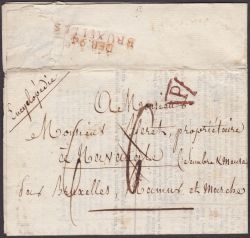 DEB 94
BRUXELLES
P
Encyclopédie
A Monsieur
Monsieur propriétaire
à
(Sambre & Meuse
par Bruxelles, Namur et Marche